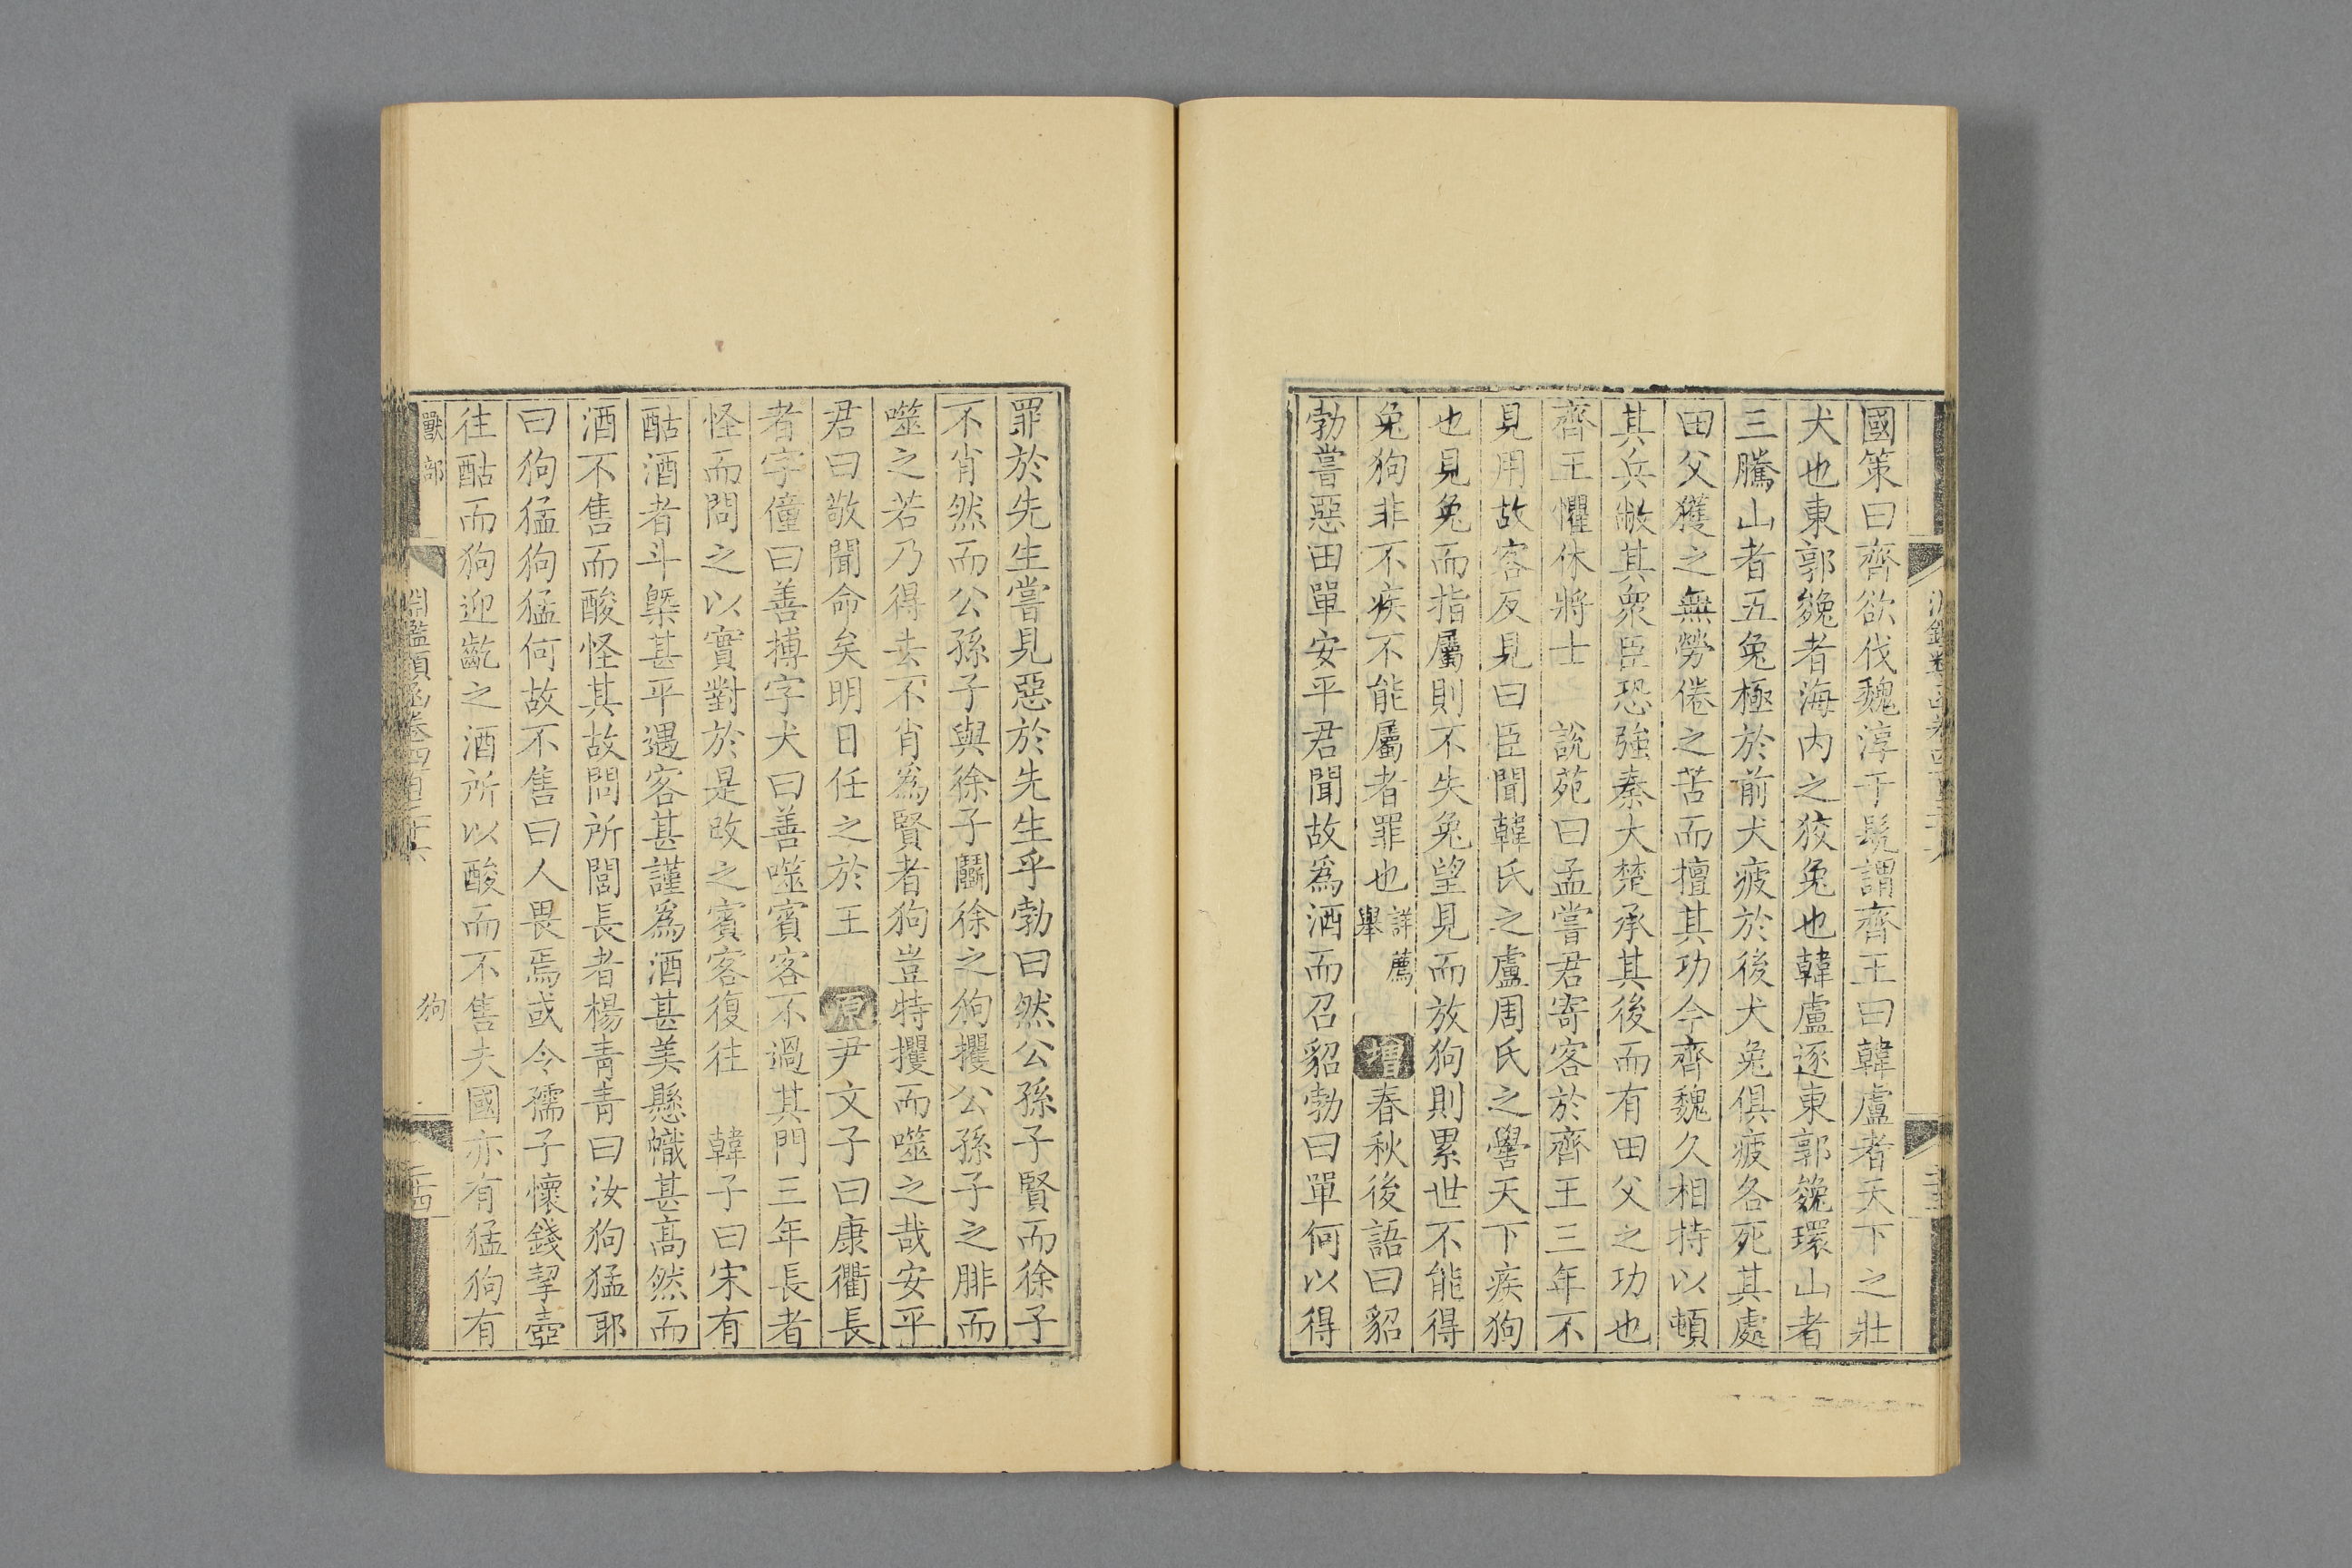 國策曰齊欲伐魏淳于髡謂齊王曰韓盧者天下之壯
犬也東郭㕙者海内之狡兔也韓盧逐東郭㕙環山者
三騰山者五兔極於前犬疲於後犬兔俱疲各死其處
田父獲之無勞倦之苦而擅其功今齊魏久相持以頓
其兵敝其衆臣恐強秦大楚承其後而有田父之功也
齊王懼休將士 說苑曰孟嘗君寄客於齊王三年不
見用故客反見曰臣聞韓氏之盧周氏之嚳天下疾狗
也見兔而指屬則不失兔望見而放狗則累世不能得
兔狗非不疾不能屬者罪也詳薦舉 增春秋後語曰貂
勃嘗惡田單安平君聞故爲酒而召貂勃曰單何以得
罪於先生嘗見惡於先生乎勃曰然公孫子賢而徐子
不肖然而公孫子與徐子鬭徐之狗攫公孫子之腓而
噬之若乃得去不肖爲賢者狗豈特攫而噬之哉安平
君曰敬聞命矣明日任之於王 原尹文子曰康衢長
者字僮曰善搏字犬曰善噬賓客不過其門三年長者
怪而問之以實對於是改之賓客復往 韓子曰宋有
酤酒者斗槩甚平遇客甚謹爲酒甚美懸幟甚高然而
酒不售而酸怪其故問所閭長者楊靑靑曰汝狗猛耶
曰狗猛狗猛何故不售曰人畏焉或令孺子懷錢挈壺
往酤而狗迎齕之酒所以酸而不售夫國亦有猛狗有
獸部 淵鑑類函卷四百三十六 狗 二十四